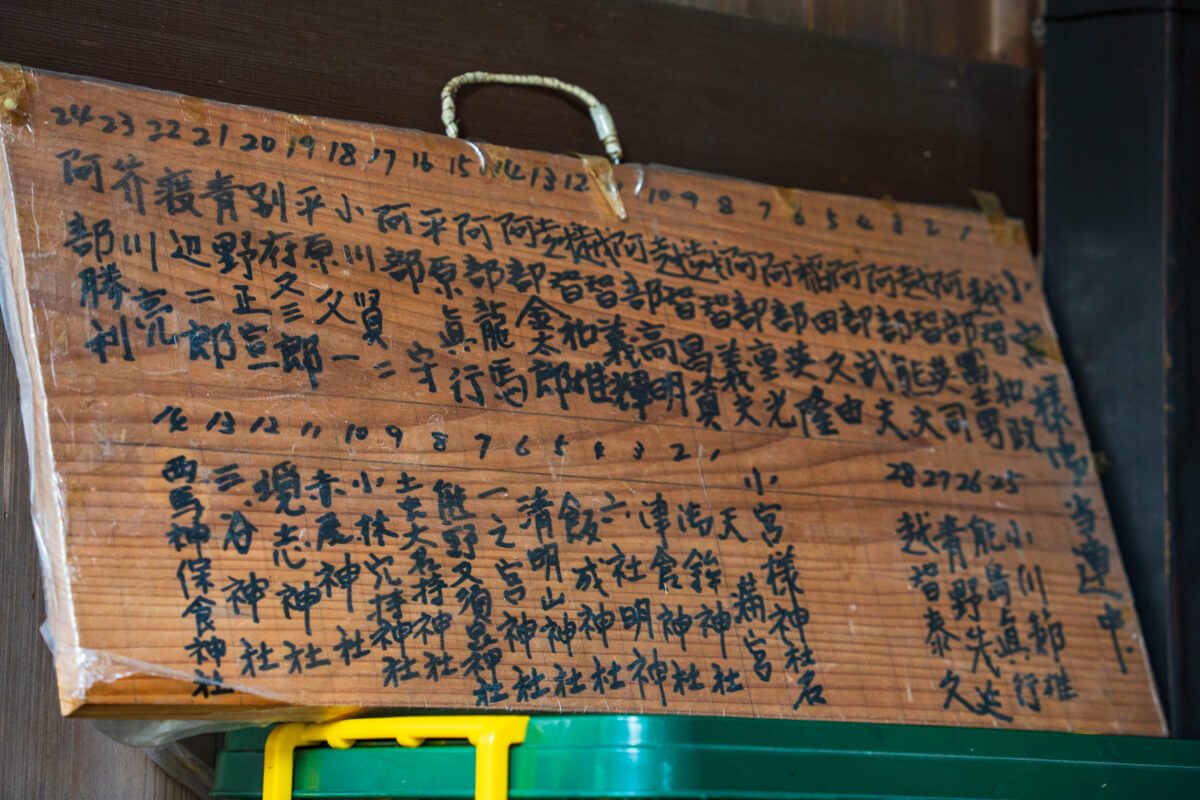 小宮様御当連中
1 越智和政
2 阿部 男
3 越智英司
4 阿部能夫
5 阿部 夫
6 稲田久由
7 阿部英隆
8 阿部重光
9 越智義夫
10 越智昌資
阿部高明
12 越智義輝
13 越智和雄
14 阿部金太郎
15 阿部龍馬
16 平原眞行
17 阿部守
18 小川賢二
19 平原久一
20 別府又三郎
21 青野正
22 渡辺二郎
23 芥川亮
24 阿部勝利
25 小川 雄
26 能島眞行
27 青野
28 越智泰久
小宮様神社名
1 天満宮
2 御鉾神社
3 津倉神社
4 六社明神
5 飯成神社
6 清明山神社
7 一之宮神社
8 熊野 神社
9 土 大名持神社
10 小林穴持神社
11 赤 神社
12 境志神社
13 三分神社
14 西馬神保食神社